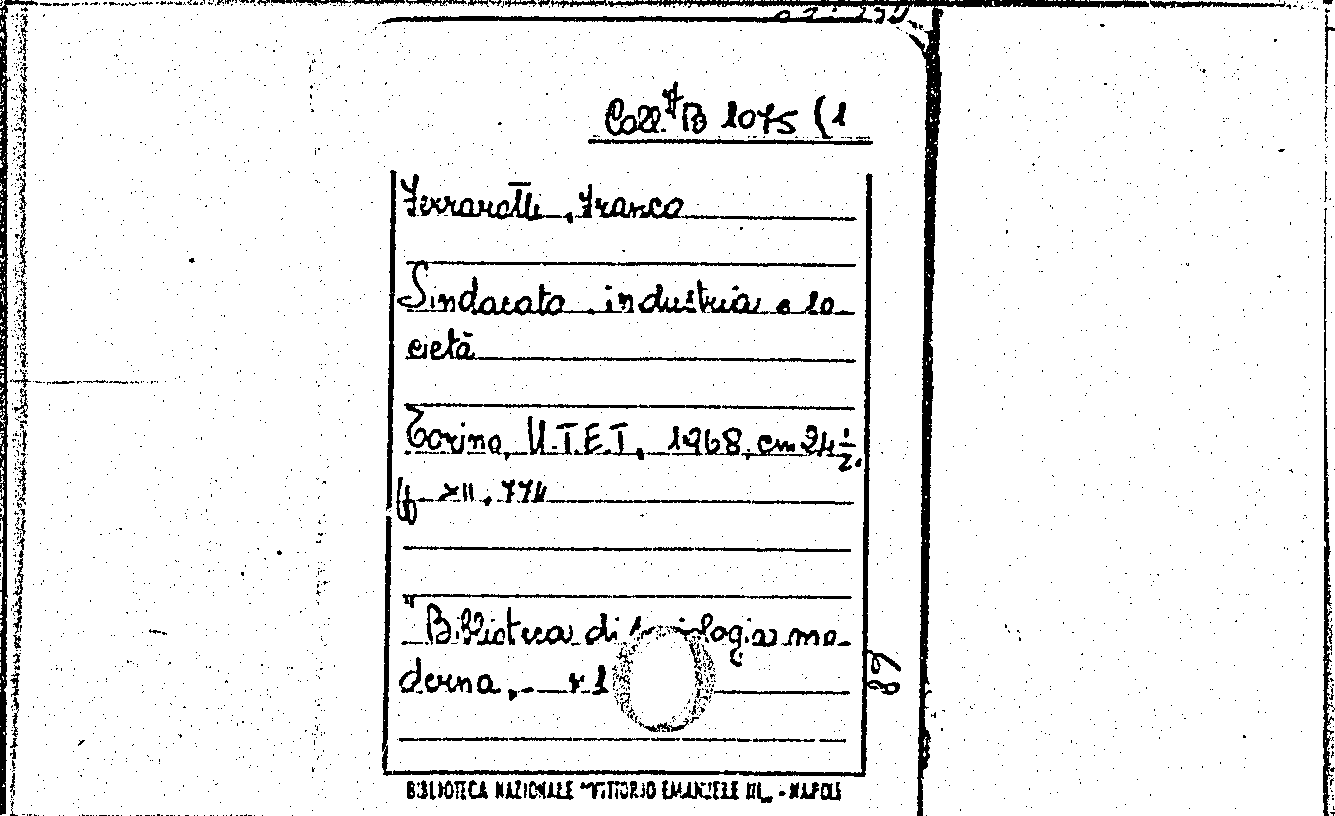 Coll. B 1075 (1
Ferrarotti, Franco
Sindacato, industria e so-
cietà
Torino, U.T.E.T., 1968, cm 24 1/2.
pp XII, 774
"Biblioteca di sociologia mo-
derna,,- 1
87
BIBLIOTECA NAZIONALE "VITTORIO EMANUELE III„ - NAPOLI